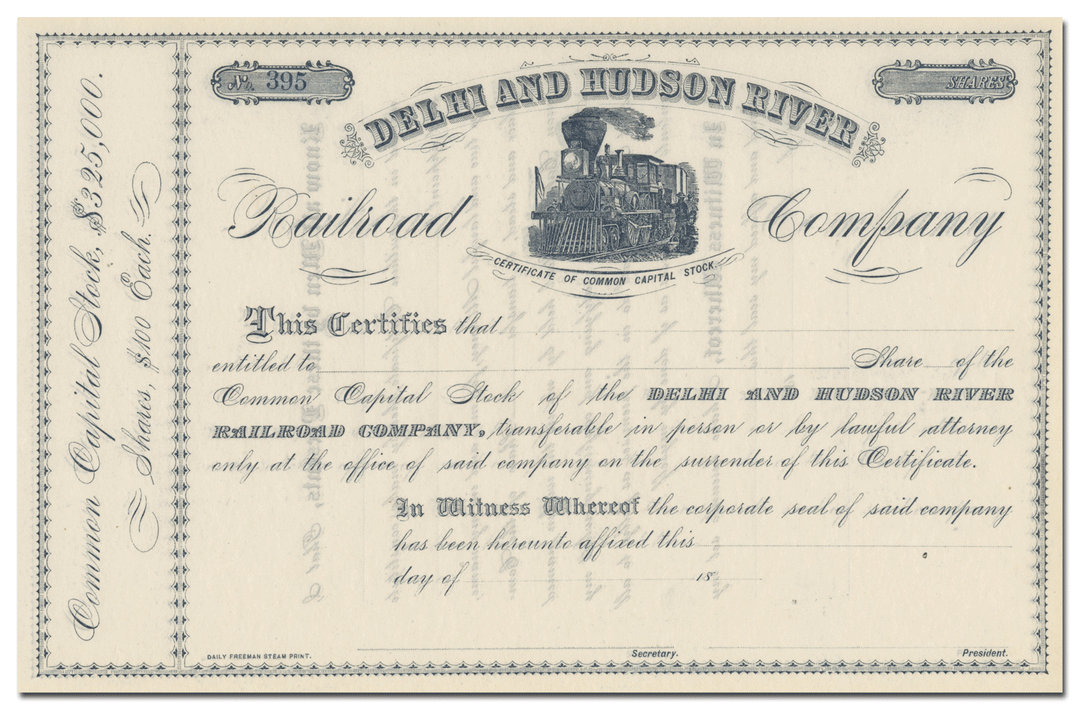 Common Capital Stock, $325,000.
Shares, $100 Each.
No. 395
SHARES
DELHI AND HUDSON RIVER
Railroad Company
CERTIFICATE OF COMMON CAPITAL STOCK.
This Certifies that
entitled to Share of the
Common Capital Stock of the DELHI AND HUDSON RIVER
RAILROAD COMPANY, transferable in person or by lawful attorney
only at the office of said company on the surrender of this Certificate.
In Witness Whereof the corporate seal of said company
has been hereunto affixed this
day of 18
DAILY FREEMAN STEAM PRINT.
Secretary.
President.